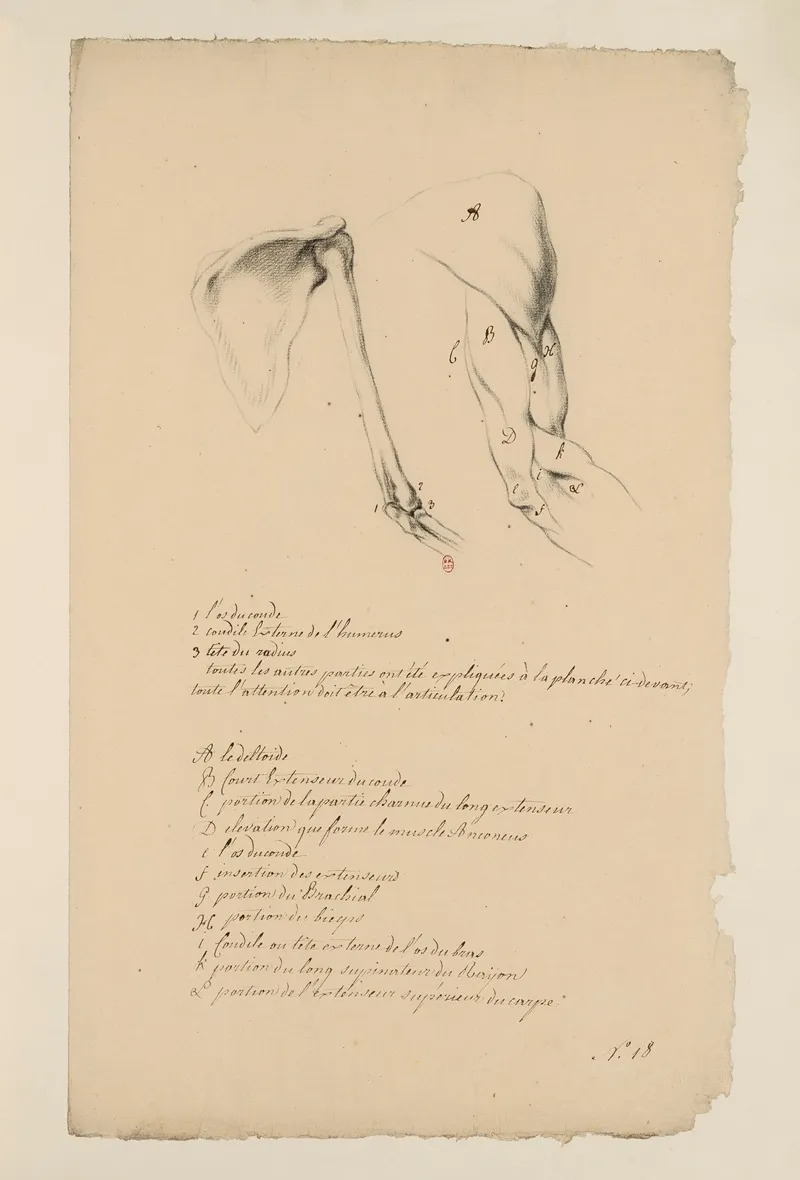 A
B
C
g
H
D
k
i
L
e
f
1
2
3
1 l'os du coude
2 condile Externe de l'humerus
3 tête du radius
toutes les autres parties ont été expliquées à la planche ci-devant;
toute l'attention doit être à l'articulation.
A le deltoide
B Court Extenseur du coude
C portion de la partie charnue du long extenseur
D elevation que forme le muscle Anconeus
e l'os du coude
f insertion des extenseurs
g portion du Brachial
H portion du biceps
i Condile ou tête externe de l'os du bras
k portion du long supinateur du Rayon
L portion de l'Extenseur supérieur du carpe
N.º 18